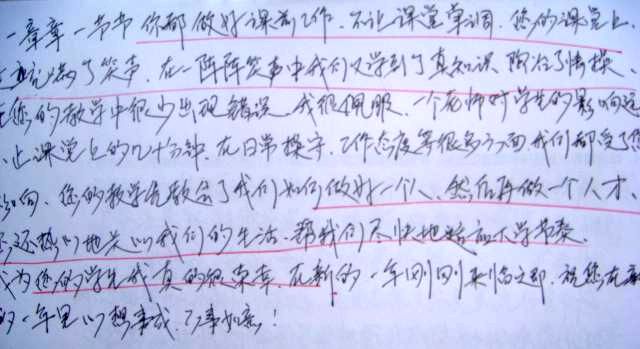 一章章一节节你都做好课前工作.不让课堂单调.您的课堂上
充满了笑声.在一阵阵笑声中我们又学到了真知识陶冶了情操.
您的教学中很少出现错误.我很佩服.一个老师对学生的影响远
止课堂上的几十分钟.在日常操守.工作态度等很多方面.我们都受了您
影响.您的教学先教会了我们如何做好一个人、然后再做一个人才.
您还热心地关心我们的生活.帮我们尽快地适应大学节奏.
为您的学生我真的很荣幸.在新的一年刚刚来临之即.祝您在新
的一年里心想事成.万事如意!